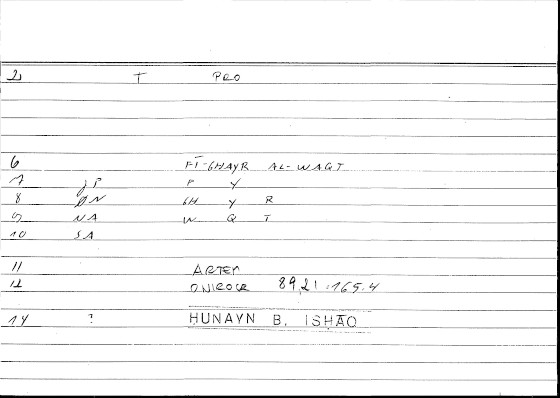 2 T PRO
6 FĪ-GHAYR AL-WAQT
7 JP F Y
8 ØN GH Y R
9 NA W Q T
10 SA
11 ARTEM
12 ONIROCR 89,21.165.4
14 ? HUNAYN B. ISHĀO